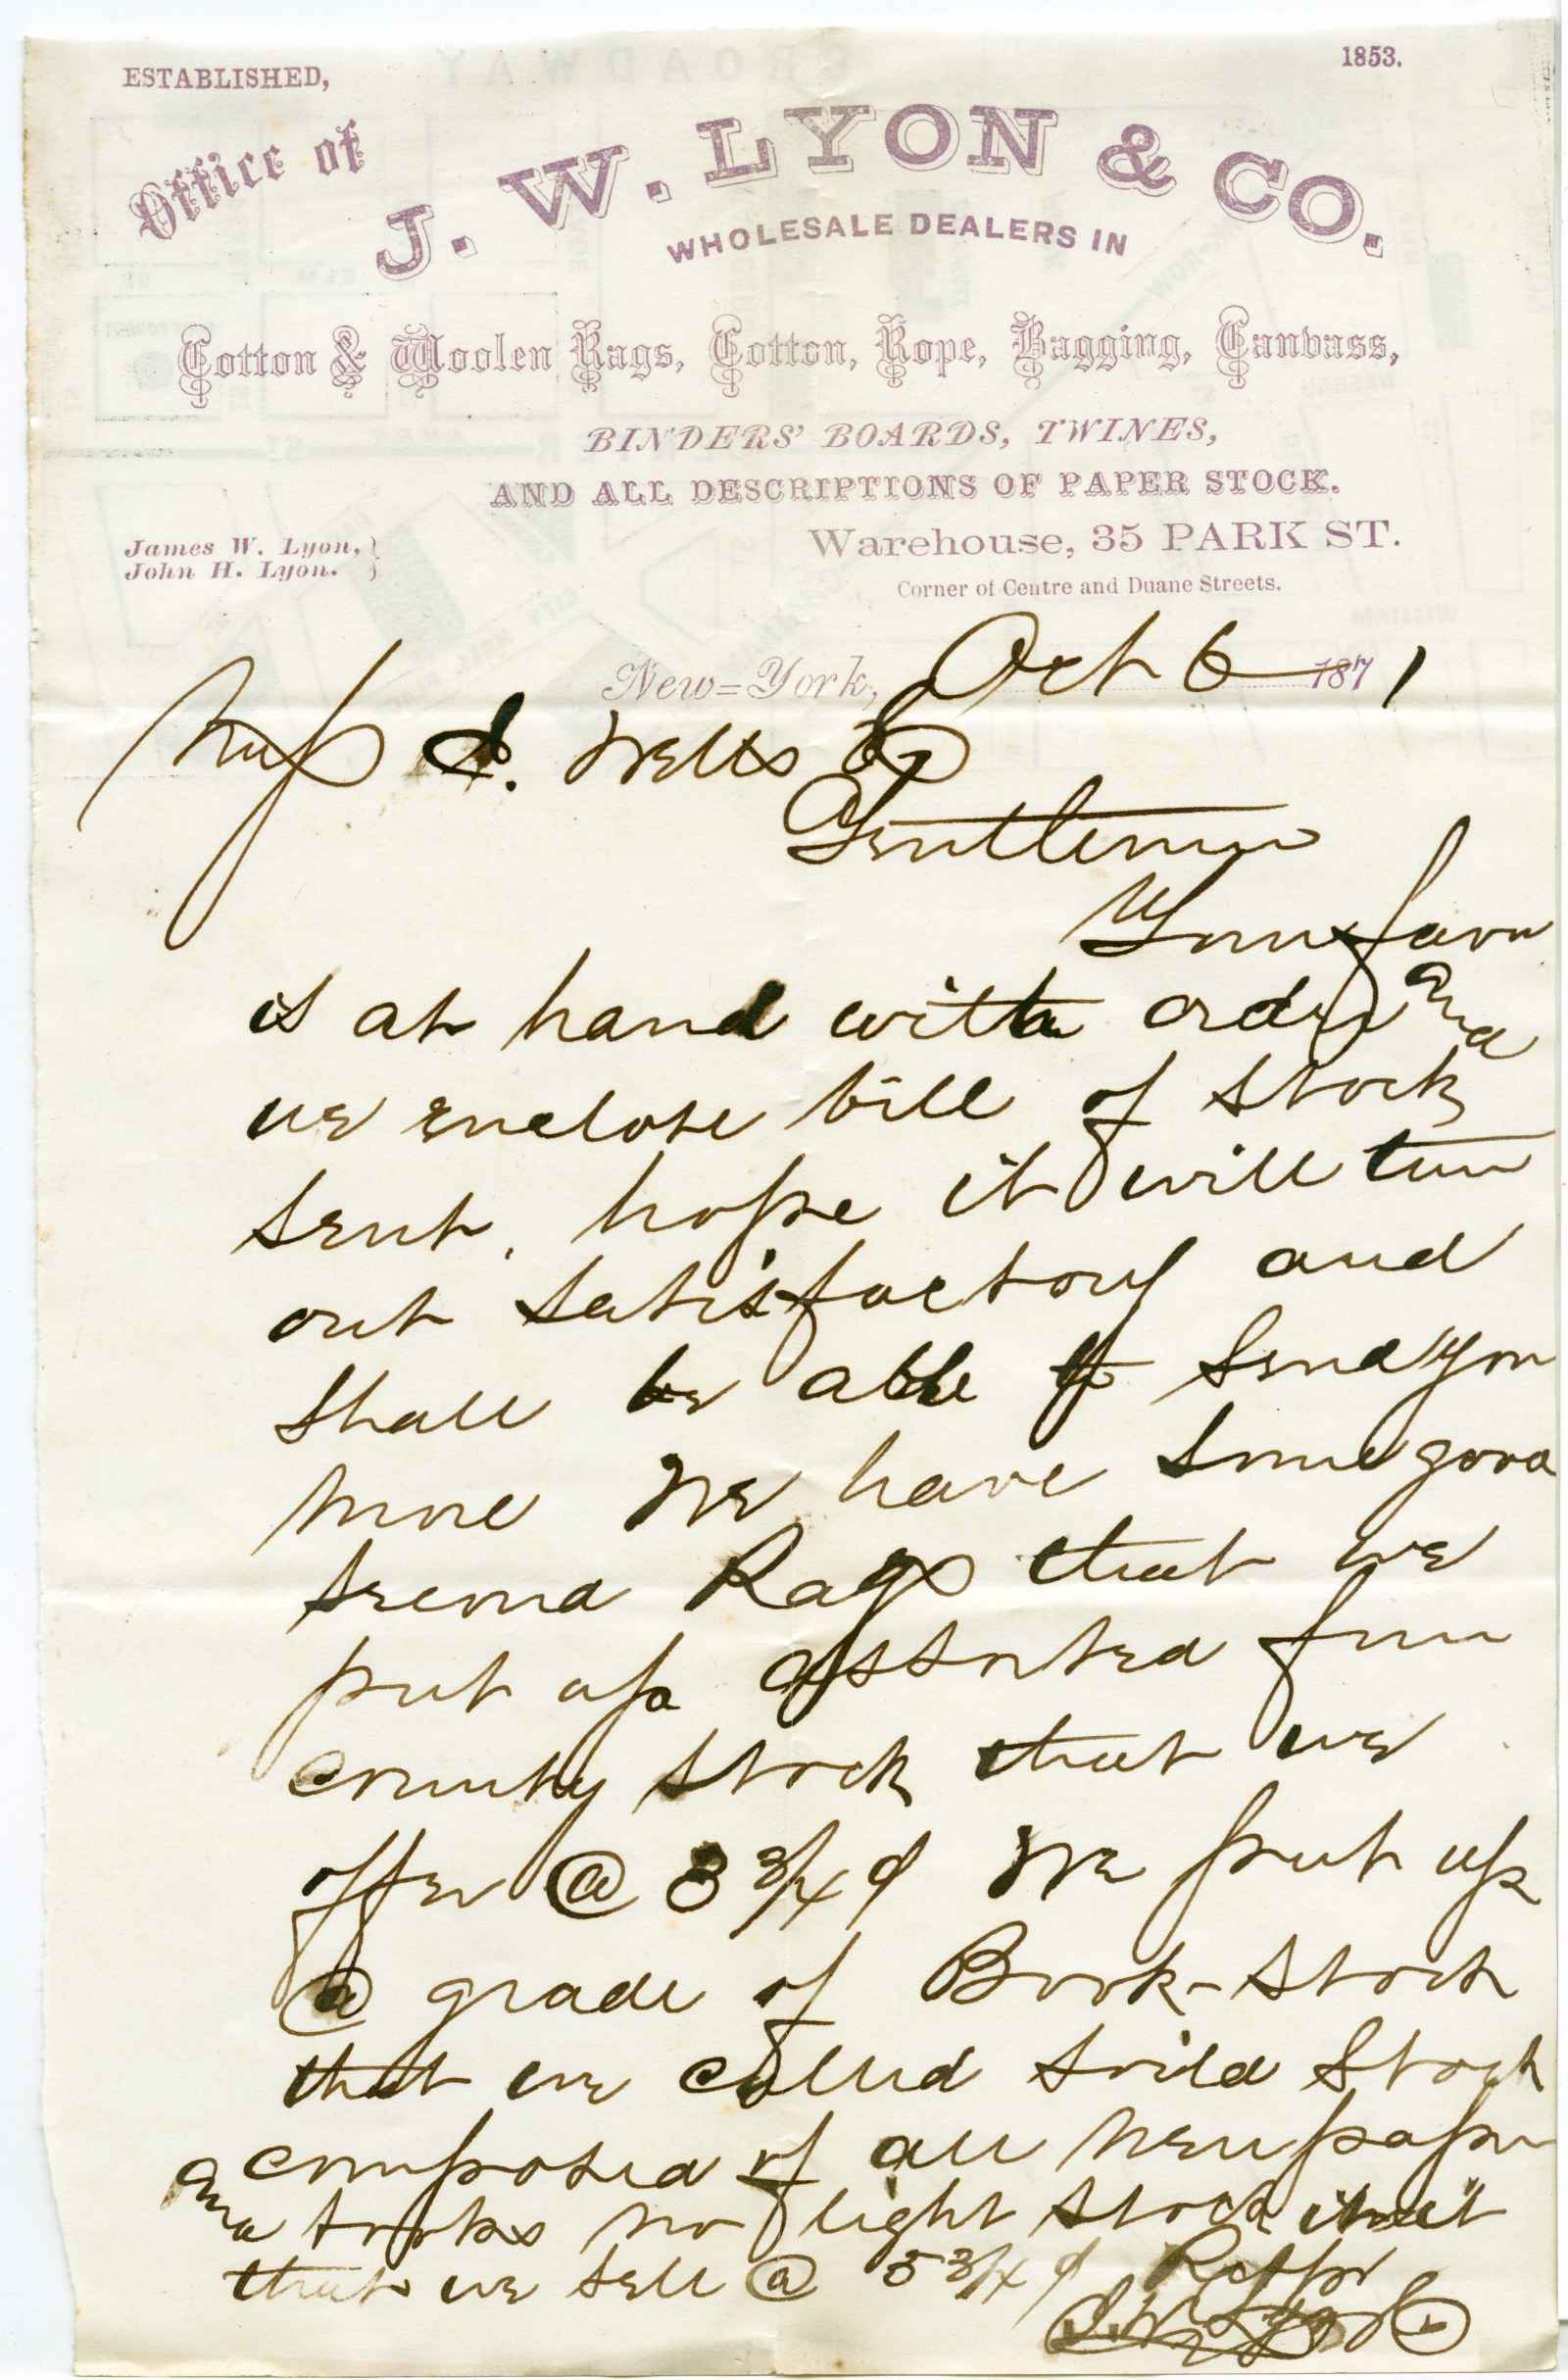 ESTABLISHED, 1853.
Office of
J. W. LYON & CO.
WHOLESALE DEALERS IN
Cotton & Woolen Rags, Cotton, Rope, Bagging, Canvass,
BINDERS' BOARDS, TWINES,
AND ALL DESCRIPTIONS OF PAPER STOCK.
Warehouse, 35 PARK ST.
James W. Lyon,
John H. Lyon.
Corner of Centre and Duane Streets.
New=York, Oct 6 1871
Wells
Gentlemen
Your favor
is at hand with order and
we enclose bill of stock
sent, hope it will turn
out satisfactory and
shall be able to send you
more We have some good
second Rags that we
put up assorted from
country stock that we
offer @ 3 3/4 ¢ We put up
a grade of Book-Stock
that we called Stock
composed of all paper
and books no light stock in it
that we sell @ 5 3/4 ¢ Resp
J. W. Lyon & Co